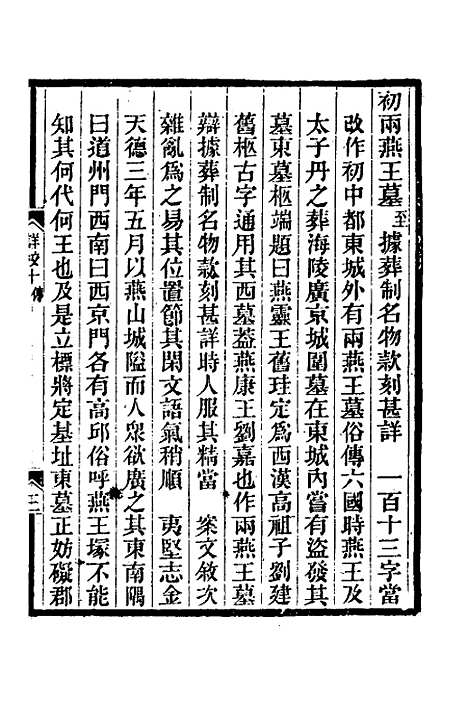 初兩燕王墓至據葬制名物款刻甚詳　一百十三字當
改作初中都東城外有兩燕王墓俗傳六國時燕王及
太子丹之葬海陵廣京城圍墓在東城內嘗有盜發其
墓東墓柩端題曰燕靈王舊珪定爲西漢高祖子劉建
舊柩古字通用其西墓蓋燕康王劉嘉也作兩燕王墓
辯據葬制名物款刻甚詳時人服其精當　案文敘次
雜亂爲之易其位置節其閑文語氣稍順　夷堅志金
天德三年五月以燕山城隘而人眾欲廣之其東南隅
曰道州門西南曰西京門各有高邱俗呼燕王塚不能
知其何代何王也及是立標將定基址東墓正妨礙郡
詳校十